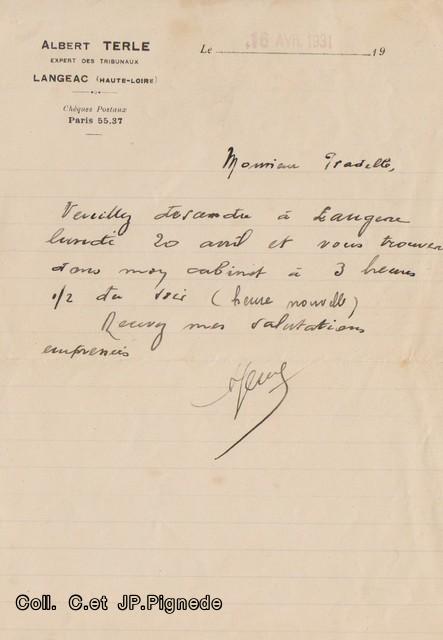 ALBERT TERLE
EXPERT DES TRIBUNAUX
LANGEAC (HAUTE-LOIRE)
Chèques Postaux
Paris 55.37
Le 16 AVR. 1931 19
Monsieur Pradelle,
Veuillez descendre à Langeac
lundi 20 avril et vous trouver
dans mon cabinet à 3 heures
1/2 du soir (heure nouvelle)
Recevez mes salutations
empressées
Coll. C.et JP.Pignede